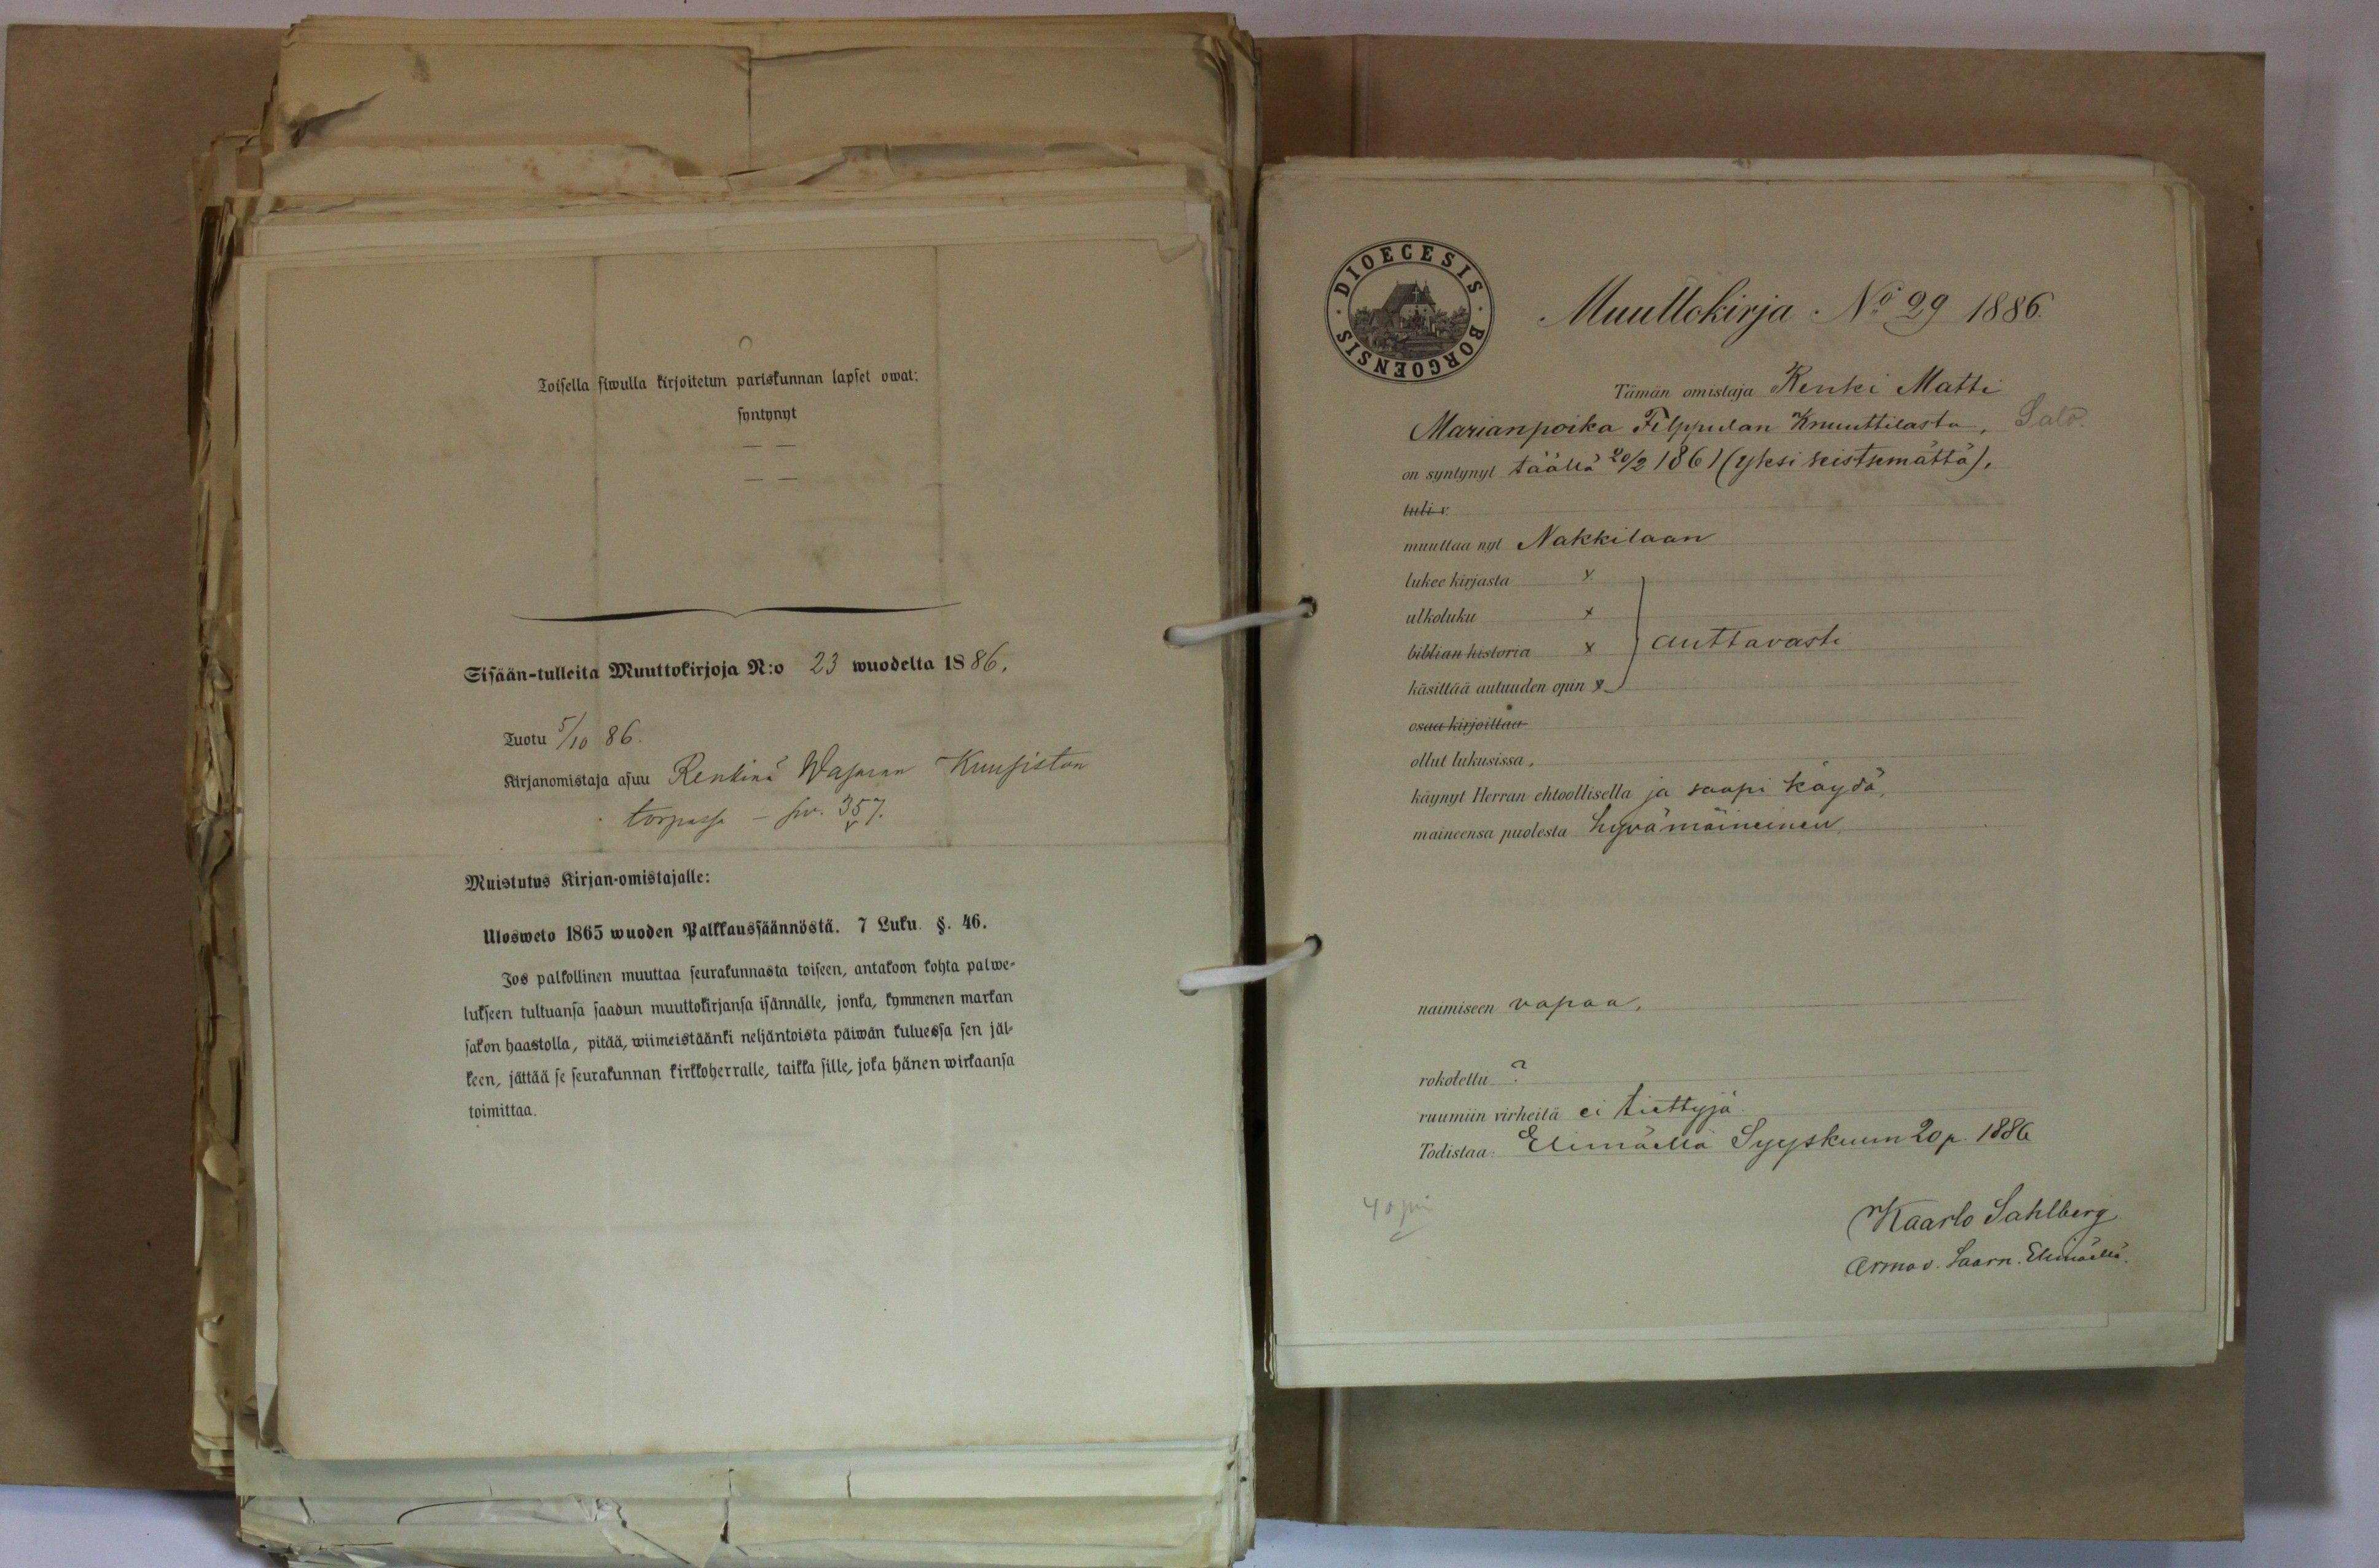 Toisella siwulla kirjoitetun pariskunnan lapset owat:
syntynyt
— —
— —
Sisään-tulleita Muuttokirjoja N:o 23 wuodelta 1886.
Tuotu 5/10 86.
Kirjanomistaja asuu Renkinä Kuusiston
torpassa – siv. 357.
Muistutus Kirjan-omistajalle:
Ulosweto 1865 wuoden Palkkaussäännöstä. 7 Luku. §. 46.
Jos palkollinen muuttaa seurakunnasta toiseen, antakoon kohta palwe-
lukseen tultuansa saadun muuttokirjansa isännälle, jonka, kymmenen markan
sakon haastolla, pitää, wiimeistäänki neljäntoista päiwän kuluessa sen jäl-
keen, jättää se seurakunnan kirkkoherralle, taikka sille, joka hänen wirkaansa
toimittaa.
DIOECESIS · BORGOENSIS ·
Muuttokirja No 29 1886.
Tämän omistaja Renki Matti
Marianpoika Filppulan Knuuttilasta, Salo.
on syntynyt täällä 20/2 1861 (yksi seistsemättä),
tuli v.
muuttaa nyt Nakkilaan
lukee kirjasta x
ulkoluku x
biblian historia x auttavasti
käsittää autuuden opin x
osaa kirjoittaa
ollut lukusissa,
käynyt Herran ehtoollisella ja saapi käydä,
maineensa puolesta hyvämäineinen,
naimiseen vapaa,
rokotettu ?
ruumiin virheitä ei tiettyjä.
Todistaa: Elimäellä Syyskuun 20 p. 1886
Kaarlo Sahlberg
Armov. Saarn. Elimäellä.